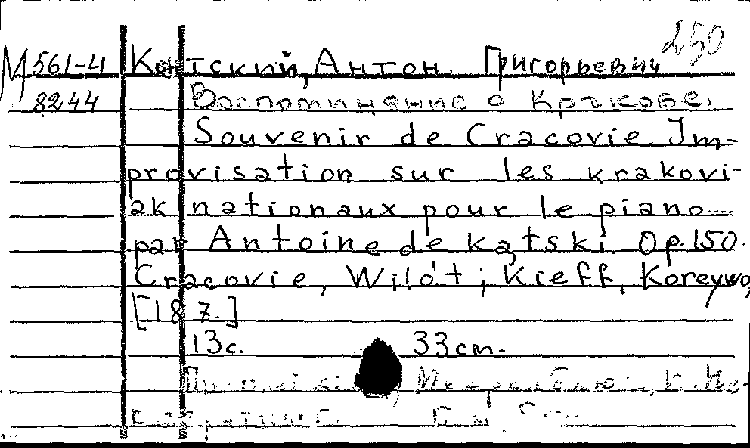 250
М 561-4 Контский, Антон Григорьевич
8244 Воспоминание о Кракове.
Souvenir de Cracovie Im-
provisation sur les krakovi-
ak nationaux pour le piano
par Antoine de Kątski Op. 150.
Cracovie, Wild't; Kieff, Koreywo,
[187.]
13с. 33cm.